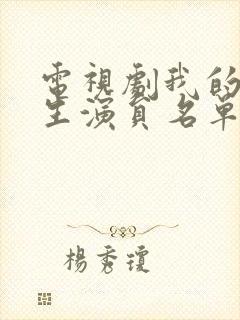 電視劇我的
生演員名單
楊秀瓊